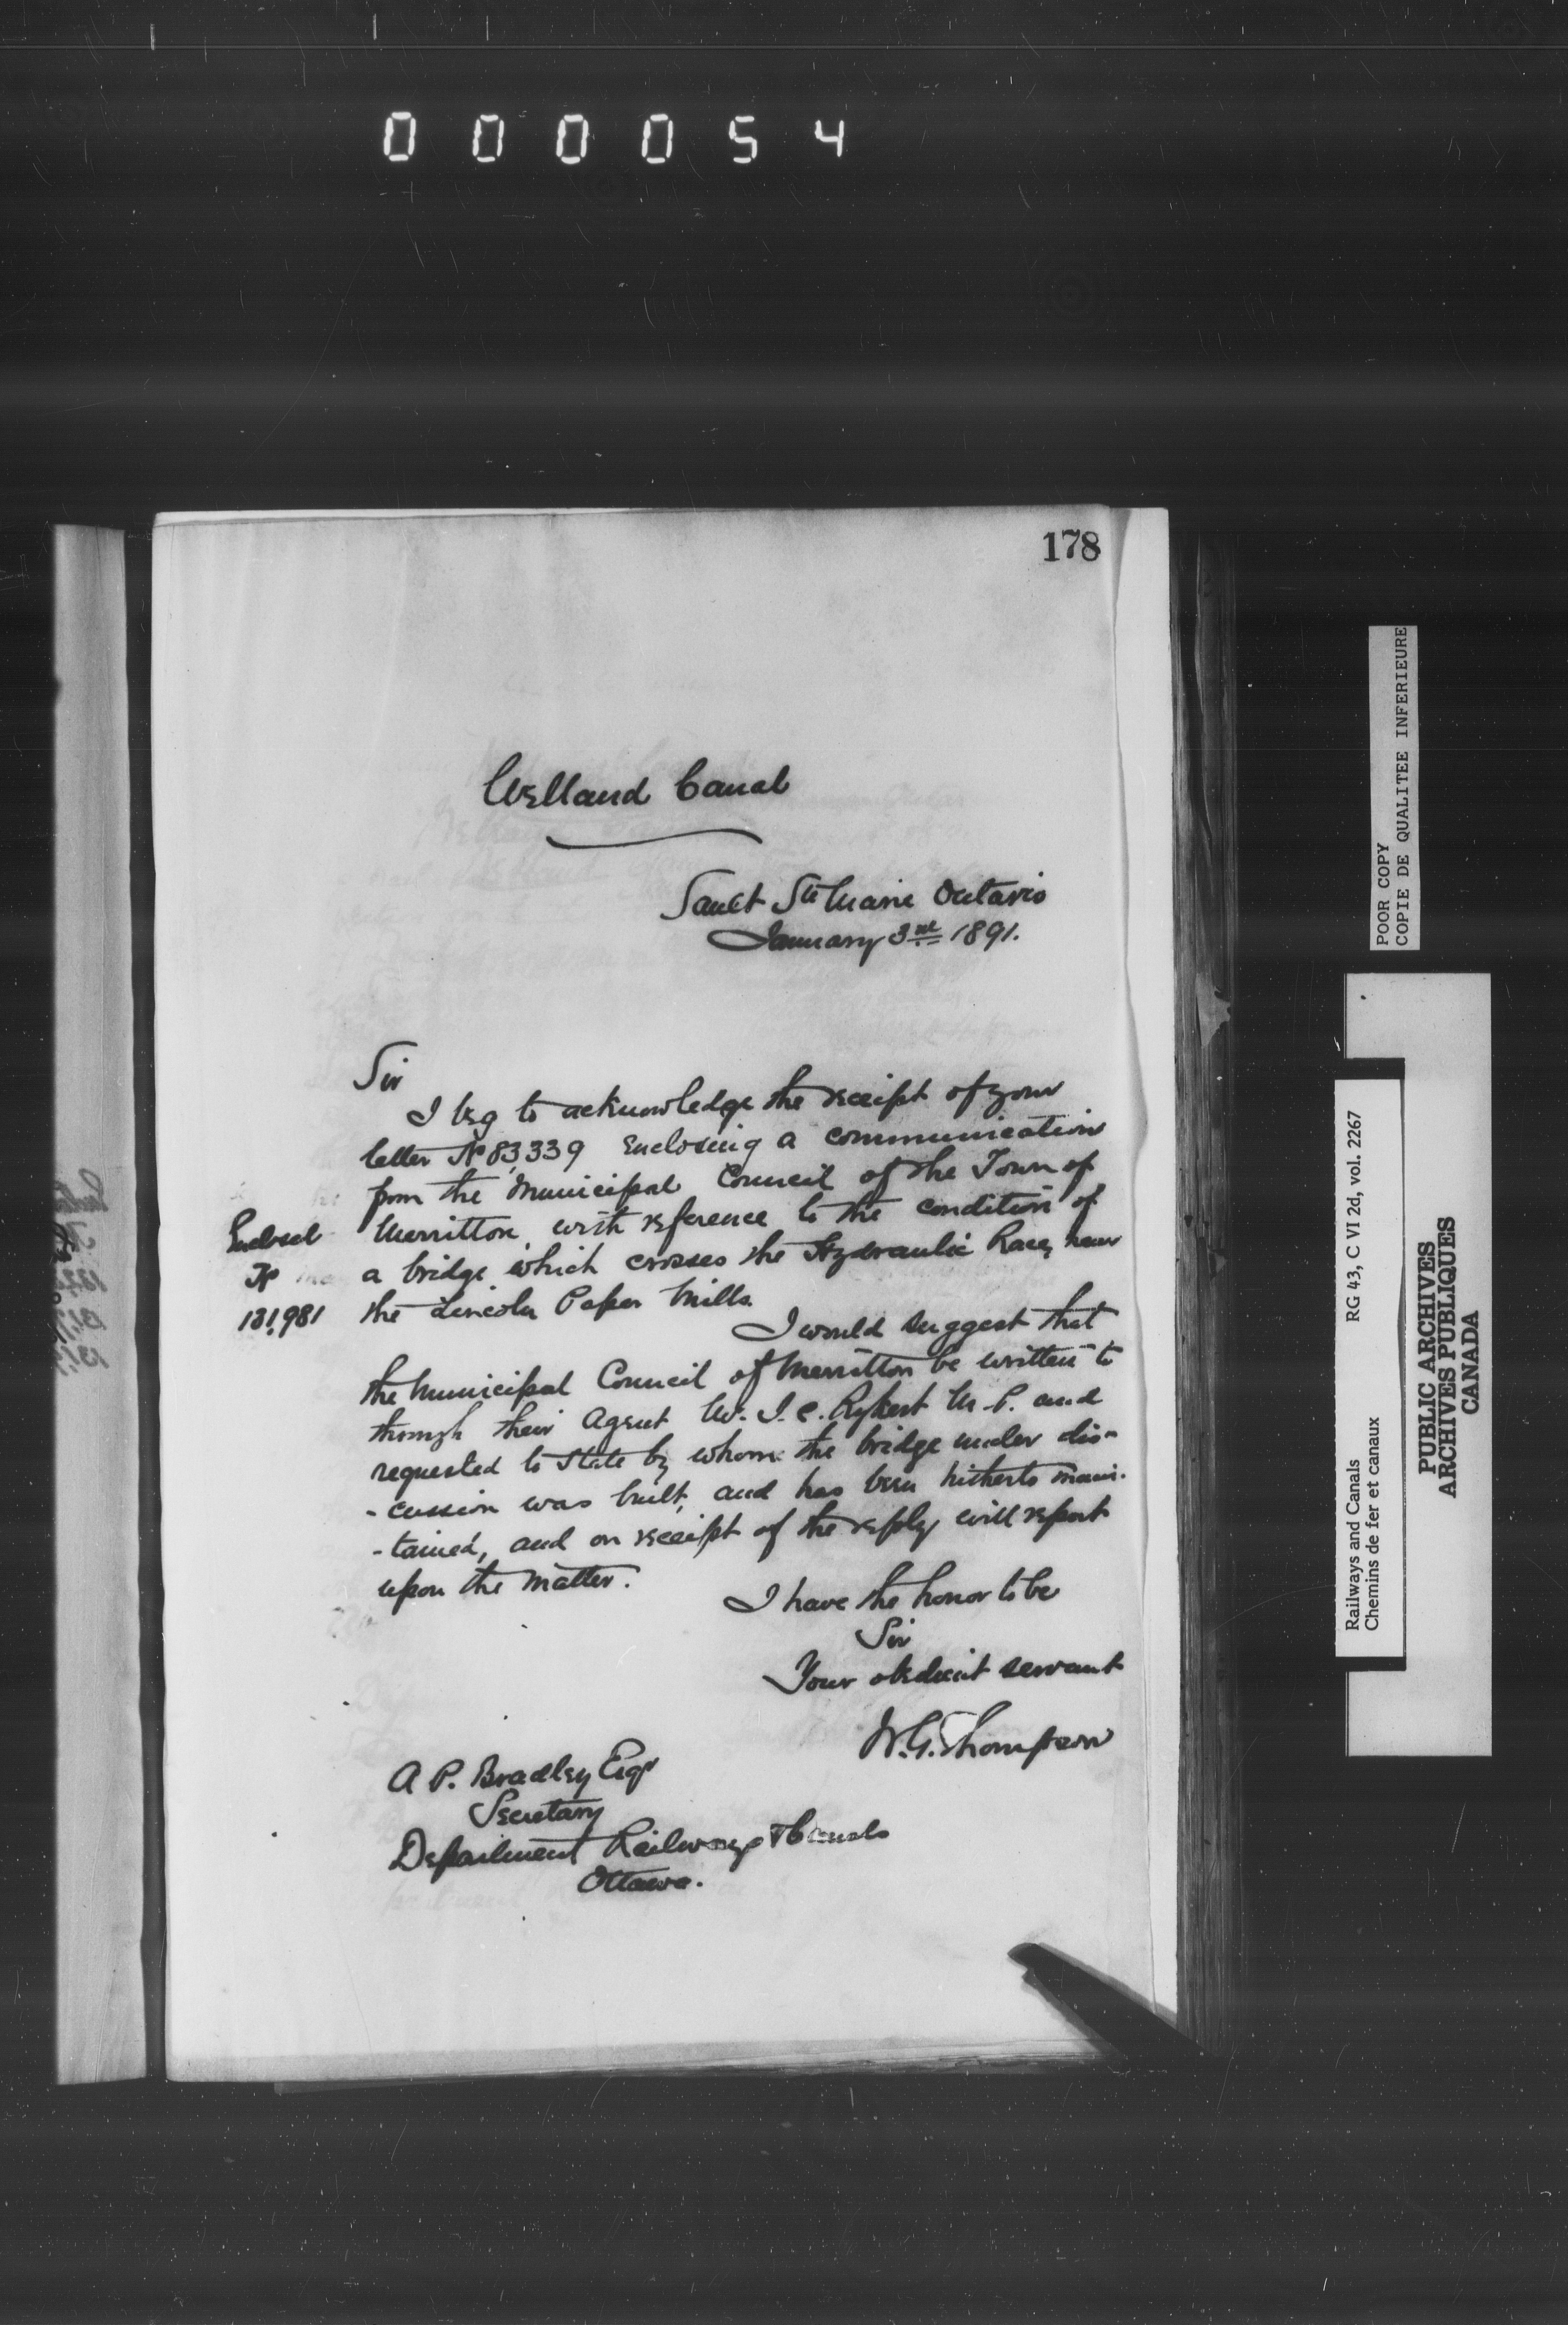 0 0 0 0 5 4
178
Welland Canal
Sault Ste Marie Ontario
January 3rd 1891.
Sir
I beg to acknowledge the receipt of your
letter No 83339 Enclosing a communication
from the Municipal Council of the Town of
Merritton, with reference to the condition of
a bridge which crosses the Hydraulic Race, near
the Lincoln Paper Mills.
Enclosed
No
131,981
I would suggest that
the Municipal Council of Merritton be written to
through their Agent Mr. J. C. Rykert M. P. and
requested to State by whom the bridge under dis-
-cussion was built, and has been hitherto main-
-tained, and on receipt of the reply will report
upon the matter.
I have the honor to be
Sir
Your obedient servant
W. G. Thompson
A P. Bradley Esqr
Secretary
Department Railways & Canals
Ottawa.
POOR COPY
COPIE DE QUALITEE INFERIEURE
Railways and Canals RG 43, C VI 2d, vol. 2267
Chemins de fer et canaux
PUBLIC ARCHIVES
ARCHIVES PUBLIQUES
CANADA